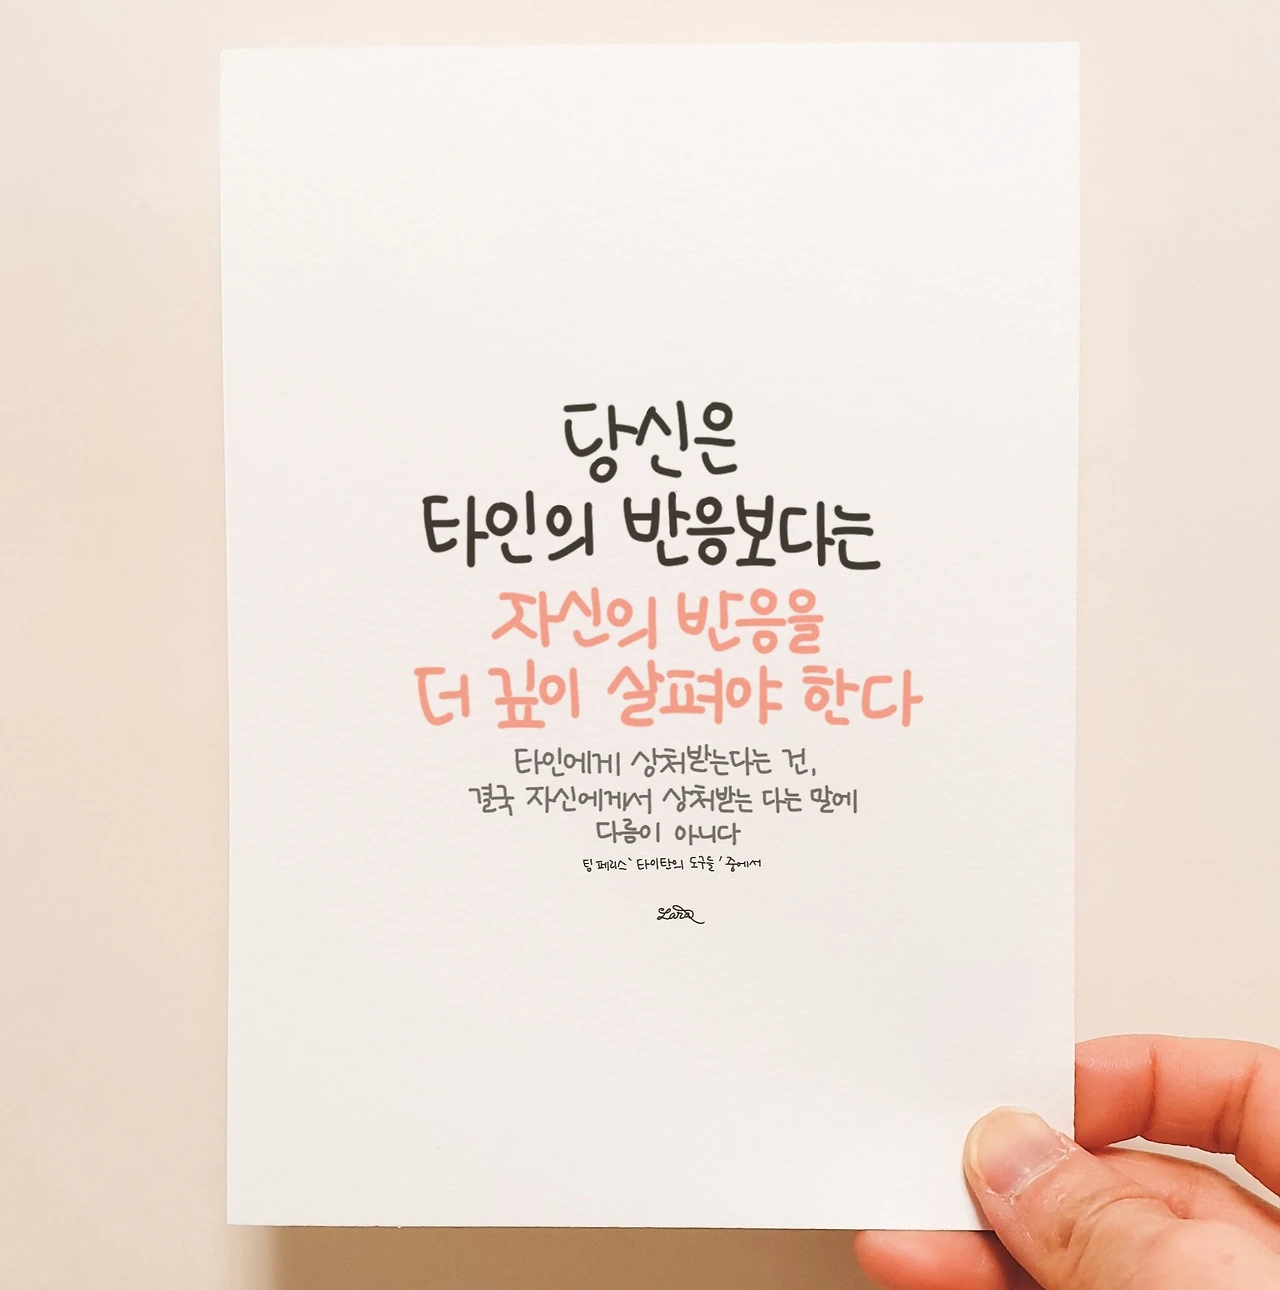 당신은
타인의 반응보다는
자신의 반응을
더 깊이 살펴야 한다
타인에게 상처받는다는 건,
결국 자신에게서 상처받는 다는 말에
다름이 아니다
팀 페리스 '타이탄의 도구들' 중에서
Lara